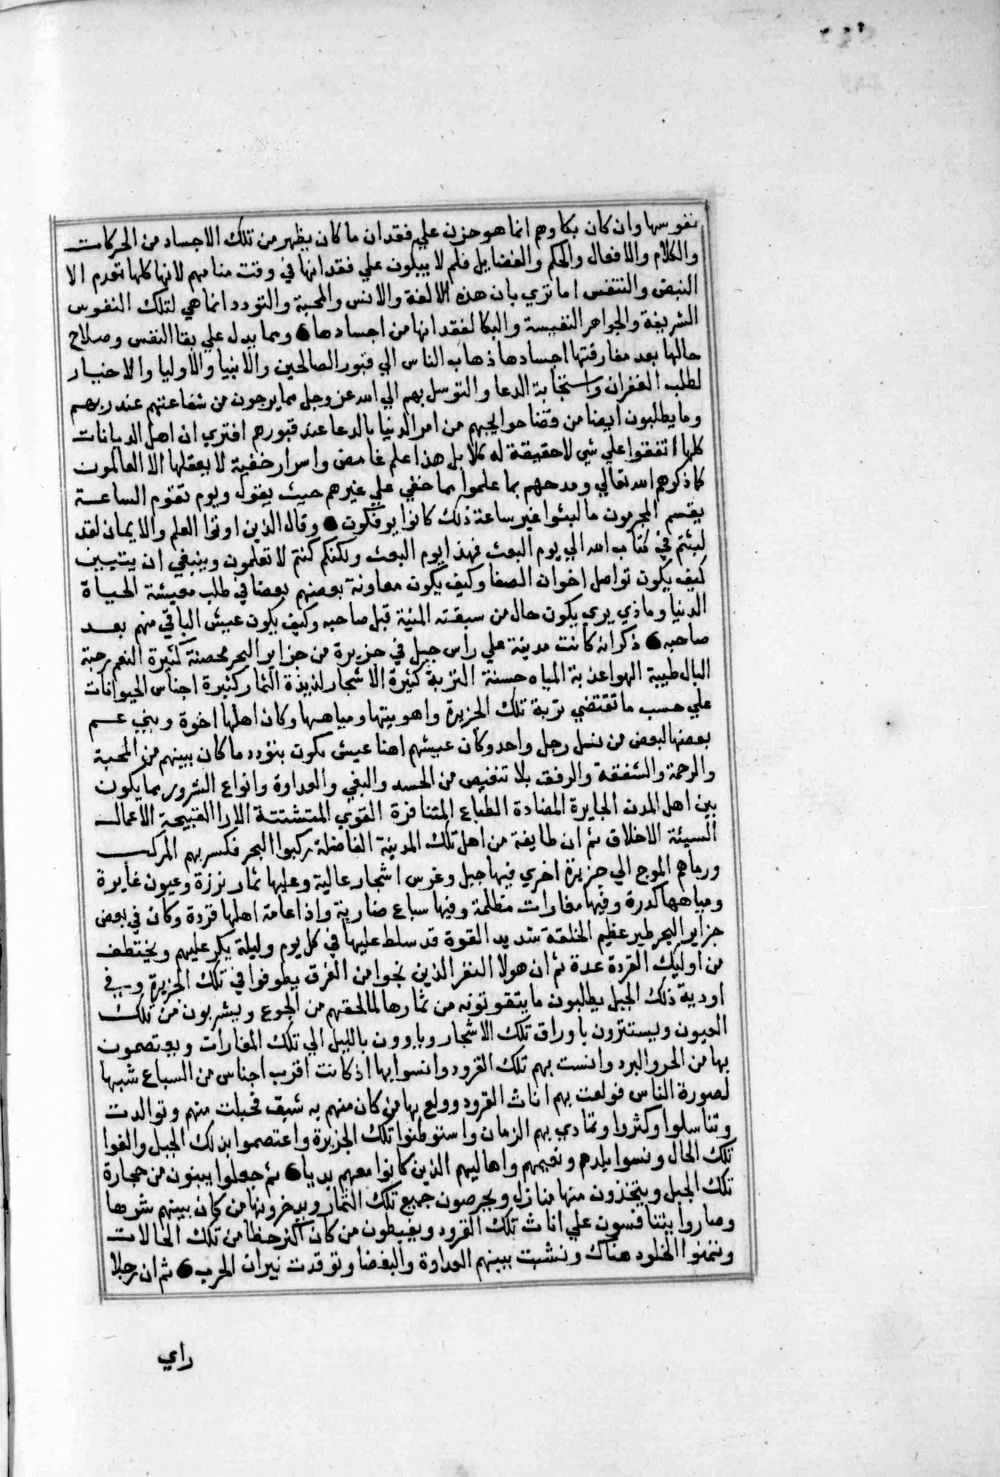 نفوسها وان كان بكاوهم انما هو حزن علي فقدان ما كان يظهر من تلك الاجساد من الحركات
والكلام والافعال والحكم والفضايل فلم لا يبكون علي فقدانها في وقت منامهم لانها كلها تعدم الا
النبض والتنفس اما تري بان هذه الالفة والانس والمحبة والتودد انما هي لتلك النفوس
الشريفة والجواهر النفيسة والبكا لفقدانها من اجسادها ومما يدل علي بقا النفس وصلاح
حالها بعد مفارقتها اجسادها ذهاب الناس الي قبور الصالحين والانبيا والاوليا والاخيار
لطلب الغفران واستجابة الدعا والتوسل بهم الي الله عز وجل مما يرجون من شفاعتهم عند ربهم
وما يطلبون ايضا من قضا حوايجهم من امر الدنيا بالدعا عند قبورهم افتري ان اهل الديانات
كلها اتفقوا علي شي لا حقيقة له كلا بل هذا علم غامض واسرار خفية لا يعقلها الا العالمون
كما ذكرهم الله تعالي ومدحهم بما علموا مما خفي علي غيرهم حيث يقول ويوم تقوم الساعة
يقسم المجرمون ما لبثوا غير ساعة ذلك كانوا يوفكون وقال الذين اوتوا العلم والايمان لقد
لبثتم في كتاب الله الي يوم البعث فهذا يوم البعث ولكنكم كنتم لا تعلمون وينبغي ان يتبين
كيف يكون تواصل اخوان الصفا وكيف يكون معاونة بعضهم بعضا في طلب معيشة الحياة
الدنيا وماذي يري يكون حال من سبقته المنية قبل صاحبه وكيف يكون عيش الباقي منهم بعد
صاحبه ذكر انه كانت مدينة علي راس جبل في جزيرة من جزاير البحر محصنة كثيرة النعم رحبة
البال طيبة الهوا عذبة المياه حسنة التربة كثيرة الاشجار لذيذة الثمار كثيرة اجناس الحيوانات
علي حسب ما تقتضي تربة تلك الجزيرة واهويتها ومياهها وكان اهلها اخوة وبني عم
بعضها لبعض من نسل رجل واحد وكان عيشهم اهنا عيش يكون بتودد ما كان بينهم من المحبة
والرحمة والشفقة والرفق بلا تنغيص من الحسد والبغي والعداوة وانواع الشرور مما يكون
بين اهل المدن الجايرة المضادة الطباع المتنافرة القوي المتشتتة الارا القبيحة الاعمال
السيئة الاخلاق ثم ان طايفة من اهل تلك المدينة الفاضلة ركبوا البحر فكسر بهم المركب
ورماهم الموج الي جزيرة اخري فيها جبل وغرس اشجار عالية وعليها ثمار نزرة وعيون غايرة
ومياهها كدرة وفيها مغارات مظلمة وفيها سباع ضارية واذا عامة اهلها قردة وكان في بعض
جزاير البحر طير عظيم الخلقة شديد القوة قد سلط عليها في كل يوم وليلة يكر عليهم ويختطف
من اوليك القردة عدة ثم ان هولا النفر الذين نجوا من الغرق يطوفوا في تلك الجزيرة وفي
اودية ذلك الجبل يطالبون ما يتقوتونه من ثمارها لما لحقهم من الجوع ويشربون من تلك
العيون ويستترون باوراق تلك الاشجار وياوون بالليل الي تلك المغارات ويعتصمون
بها من الحر والبرد وانست بهم تلك القرود وانسوا بها اذ كانت اقرب اجناس من السباع شبها
لصورة الناس فولعت بهم اناث القرود وولع بها من كان منهم به شبق فحبلت منهم وتوالدت
وتناسلوا وكثروا وتمادي بهم الزمان واستوطنوا تلك الجزيرة واعتصموا بذلك الجبل والفوا
تلك الحال ونسوا بلدهم ونعيمهم واهاليهم الذين كانوا معهم بديا ثم جعلوا يبنون من حجارة
تلك الجبل ويتخذون منها منازل ويحرصون جميع تلك الثمار ويدخرونها من كان بينهم شرها
وصاروا يتنافسون علي اناث تلك القرود ويغبطون من كان اكثر حظا من تلك الحالات
وتمنوا الخلود هناك ونشبت بينهم العداوة والبغضا وتوقدت نيران الحرب ثم ان رجلا
راي